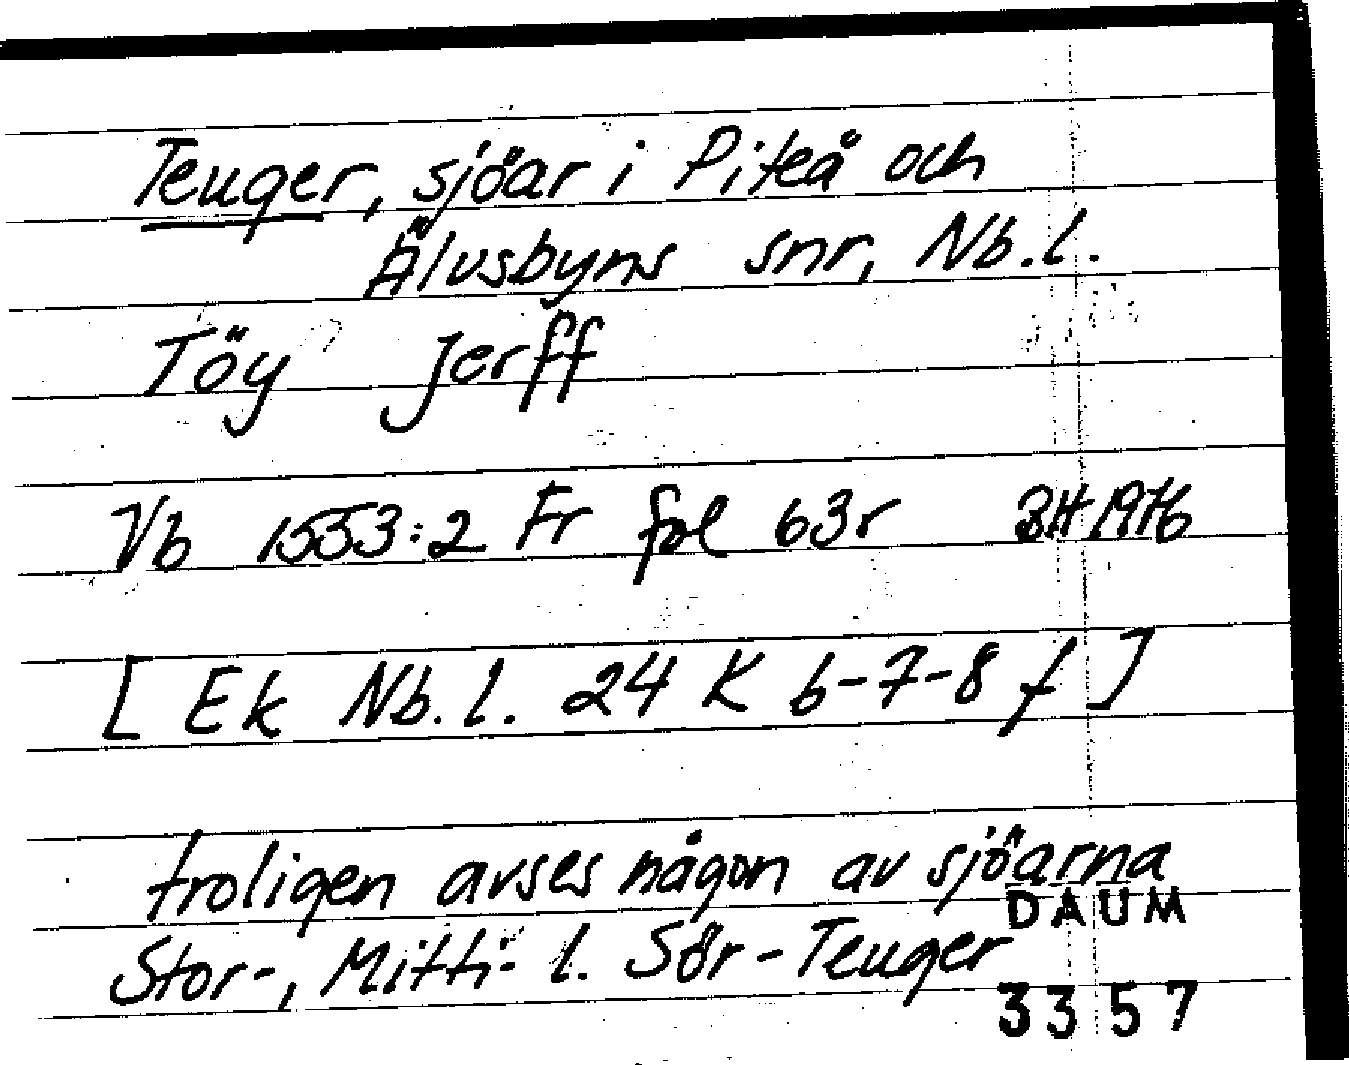 Teuger, sjöar i Piteå och
Älvsbyns snr, Nb.l.
Töy Jerff
Vb 1553:2 Fr fol 63r BH 1976
[ Ek Nb.l. 24 K 6-7-8 f ]
troligen avses någon av sjöarna
Stor-, Mitti- l. Sör-Teuger
DAUM
3357